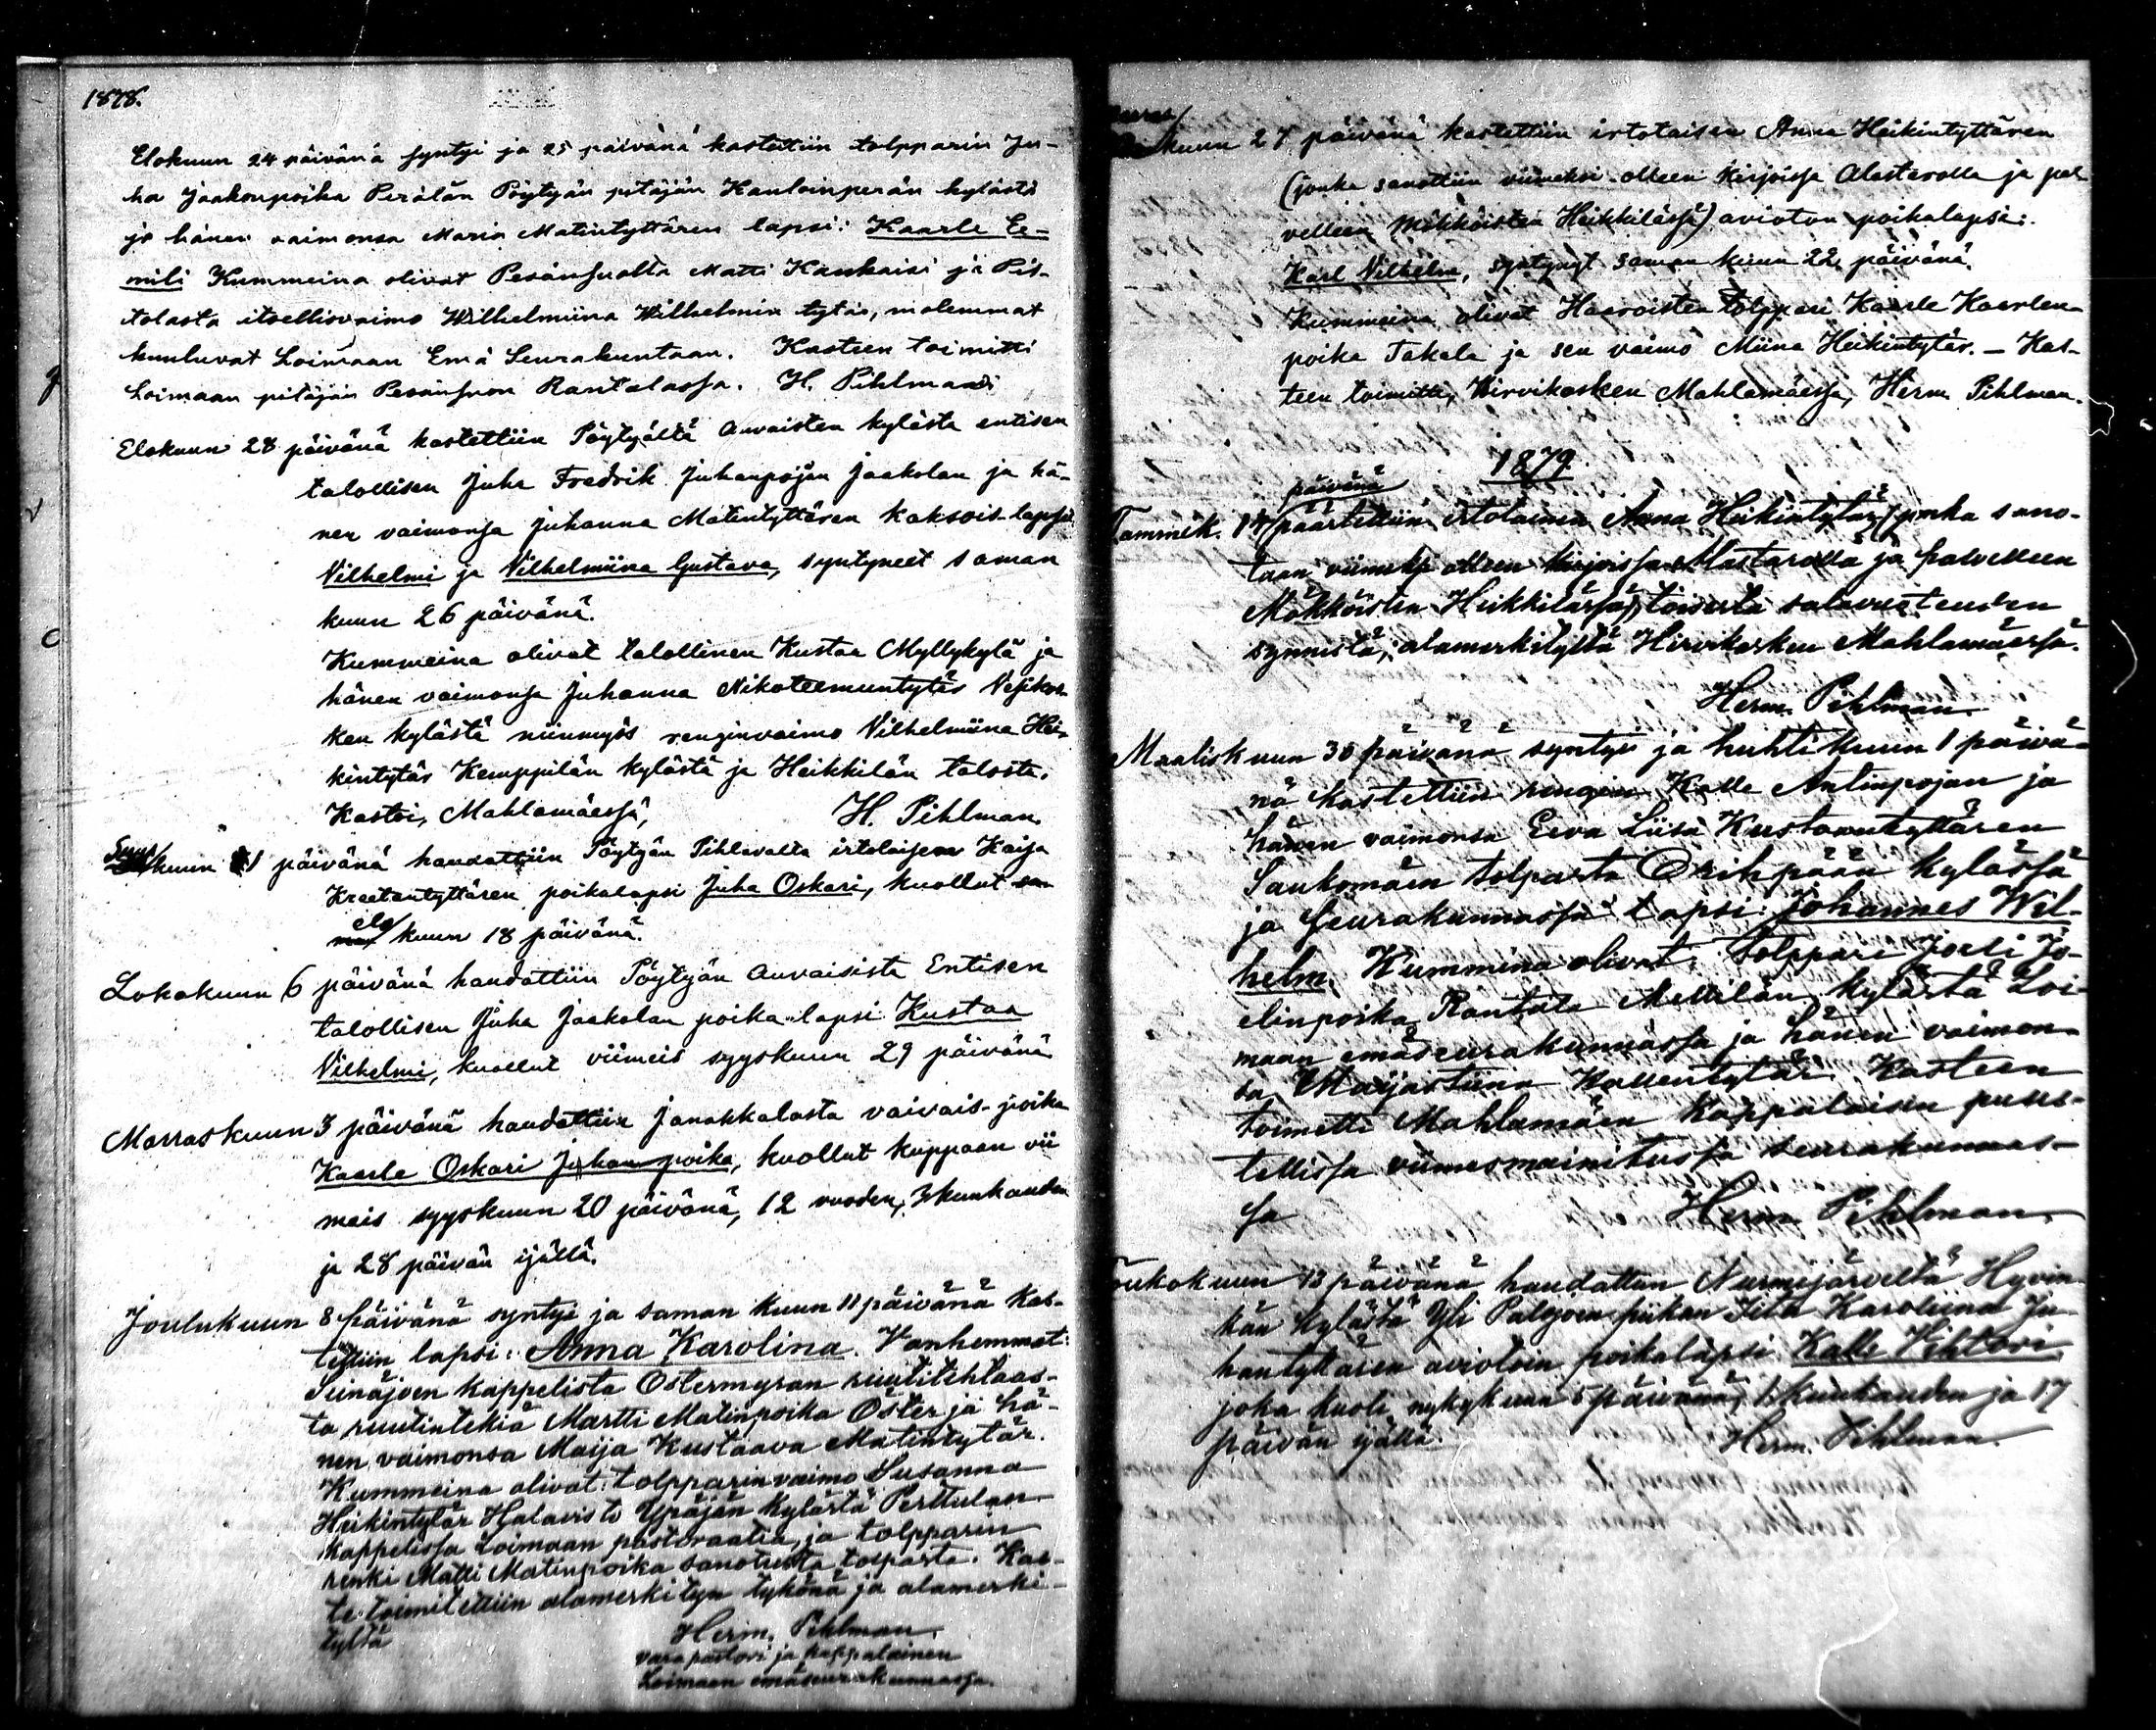 1878.
Elokuun 24 päivänä syntyi ja 25 päivänä kastettiin tolpparin Ju-
ha Jaakonpoika Perälän Pöytyän pitäjän Hauloinperän kylästä
ja hänen vaimonsa Maria Matintyttären lapsi: Kaarle Ee-
mili Kummeina olivat Pesänsuolta Matti Kankaisi ja Pis-
tolasta itsellisvaimo Wilhelmiina Wilhelmin tytär, molemmat
kuuluvat Loimaan Emä Seurakuntaan. Kasteen toimitti
Loimaan pitäjän Pesänsuon Rantalassa. H. Pihlman
Elokuun 28 päivänä kastettiin Pöytyältä Auvaisten kylästä entisen
talollisen Juha Fredrik Juhanpojan Jaakolan ja hä-
nen vaimonsa Juhanna Matintyttären kaksois-lapsi
Vilhelmi ja Vilhelmiina Gustava, syntyneet saman
kuun 26 päivänä.
Kummeina olivat talollinen Kustaa Myllykylä ja
hänen vaimonsa Juhanna Nikoteemuntytär Vesikos-
ken kylästä niinmyös renginvaimo Vilhelmiina Hei-
kintytär Kemppilän kylästä ja Heikkilän talosta.
Kastoi, Mahlamäessä, H. Pihlman.
Syyskuun 1 päivänä haudattiin Pöytyän Pihlavalta irtolaisen Kaisa
Kreetantyttären poikalapsi Juha Oskari, kuollut
elo kuun 18 päivänä.
Lokakuun 6 päivänä haudattiin Pöytyän Auvaisista Entisen
talollisen Juha Jaakolan poika-lapsi Kustaa
Vilhelmi, kuollut viimeis syyskuun 29 päivänä
Marraskuun 3 päivänä haudattiin Janakkalasta vaivais-poika
Kaarle Oskari Juhanpoika, kuollut kuppaan vii
meis syyskuun 20 päivänä, 12 vuoden, kuukauden
ja 28 päivän ijällä.
Joulukuun 8 päivänä syntyi ja saman kuun 11 päivänä kas-
tettiin lapsi: Anna Karolina. Vanhemmat:
Seinäjoen kappelista Östermyran ruutitehtaas-
ta ruutintekiä Martti Matinpoika Öster ja hä-
nen vaimonsa Maija Kustaava Matintytär.
Kummeina olivat: tolpparin vaimo Susanna
Heikintytär Halavisto Ypäjän kylästä Perttulan
kappelissa Loimaan pastoraatia, ja tolpparin
renki Matti Matinpoika sanotusta torpasta. Kas-
te toimitettiin alamerkityn tykönä ja alamerki-
tyltä Herm. Pihlman.
varapastori ja kappalainen
Loimaan emäseurakunnassa.
Marraskuun 27 päivänä kastettiin irtolaisen Anna Heikintyttären
(jonka sanottiin viimeksi olleen kirjoissa Alastarolla ja pal-
velleen Mökköisten Heikkilässä) aviotoin poikalapsi:
Karl Vilhelm, syntynyt saman kuun 22 päivänä.
Kummeina olivat Haaroisten tolppari Kaarle Kaarlen-
poika Takala ja sen vaimo Miina Heikintytär. – Kas-
teen toimitti, Hirvikosken Mahlamäessä, Herm. Pihlman.
1879.
päivänä
Tammik. päästettiin irtolainen Anna Heikintytär (jonka sano-
taan viimeksi olleen kirjoissa Alastarolla ja palvelleen
Mökköisten Heikkilässä), toisesta salavuoteuden
synnistä, alamerkityltä Hirvikosken Mahlamäessä.
Herm. Pihlman.
Maaliskuun 30 päivänä syntyi ja huhtikuun 1 päivä-
nä kastettiin rengin Kalle Antinpojan ja
hänen vaimonsa Eeva Liisa Kustaantyttären
Saukomäen tolpasta Orihpään kylässä
ja seurakunnassa lapsi: Johannes Wil-
helm. Kummina olivat: Tolppari Joeli Jo-
elinpoika Rantala Mellilän kylästä Loi-
maan emäseurakunnassa ja hänen vaimon-
sa Maijastiina Kallentytär. Kasteen
toimitti Mahlamäen Kappalaisen puus-
tellissa viimesmainitussa seurakunnas-
sa Herm. Pihlman.
Toukokuun 13 päivänä haudattiin Nurmijärveltä Hyvin-
kään kylästä Yli Palojoen piikan Iita Karoliina Ju-
hantyttären aviotoin poikalapsi Kalle Vihtori
joka kuoli nykykuun 5 päivänä, 1 kuukauden ja 17
päivän ijällä. Herm. Pihlman.